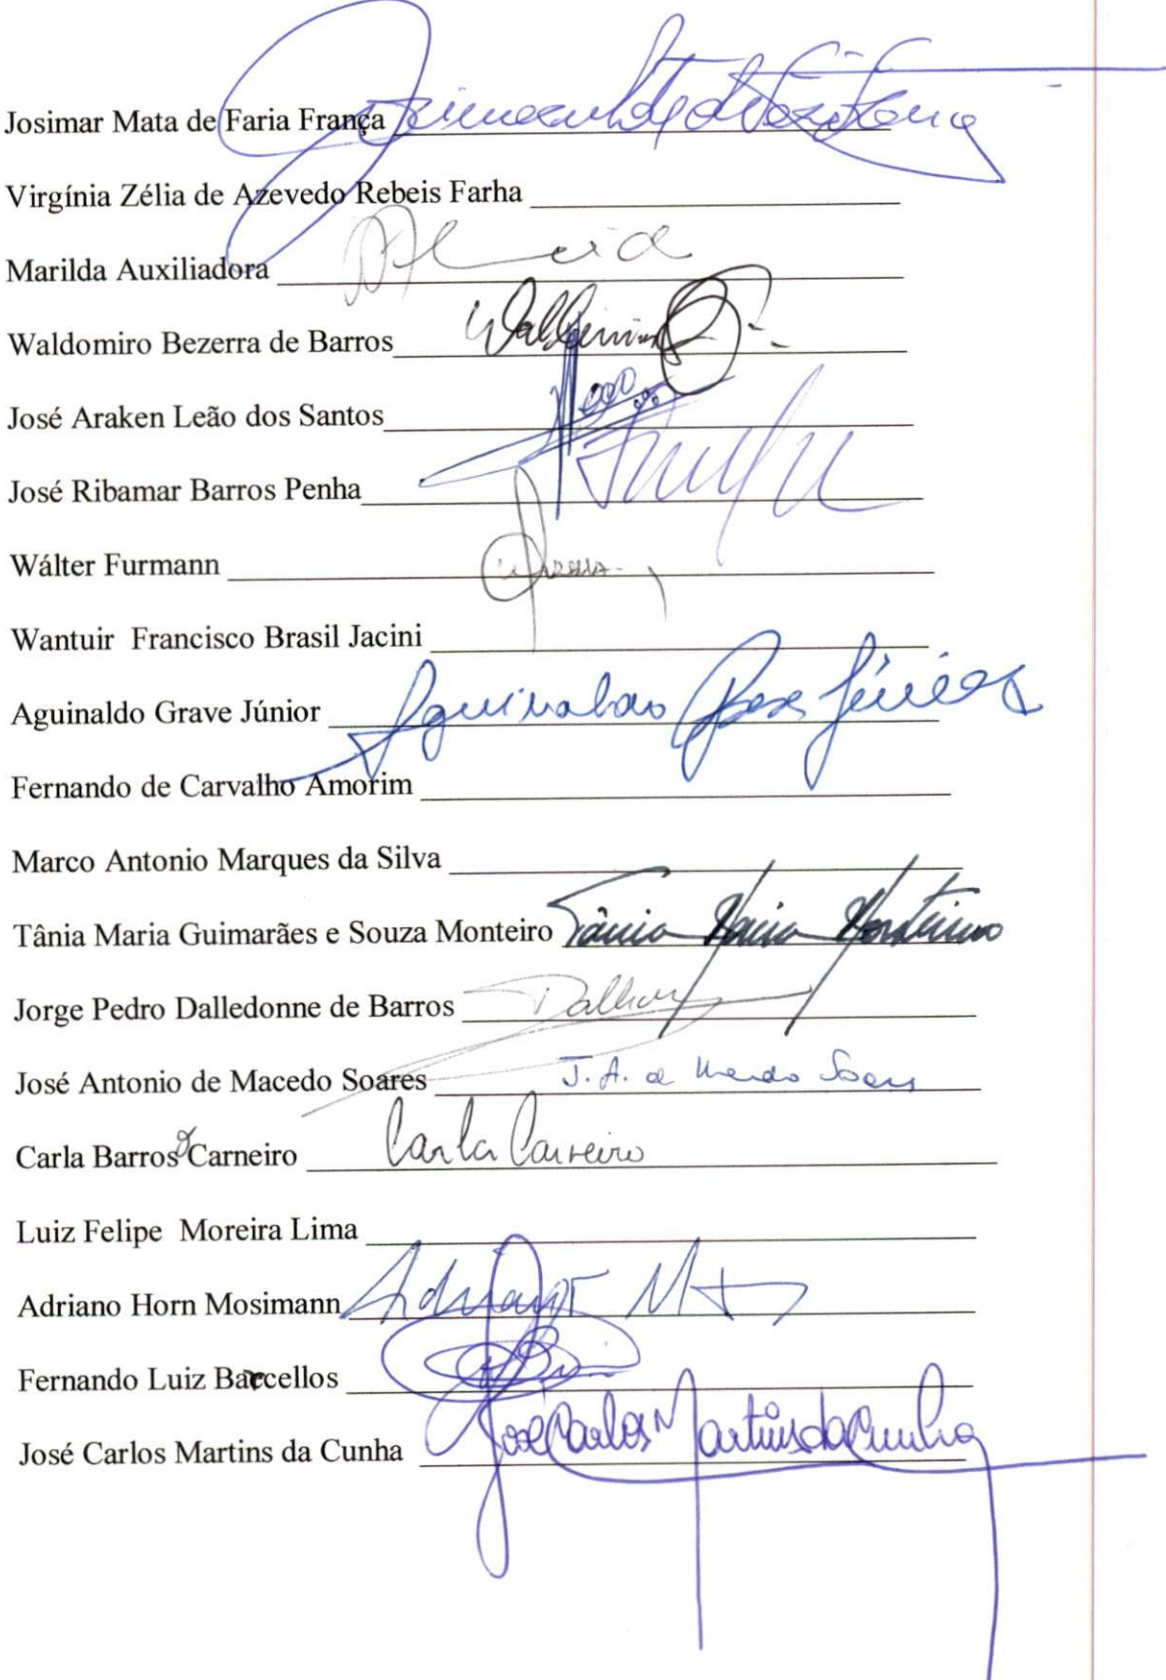 Josimar Mata de Faria França
Virgínia Zélia de Azevedo Rebeis Farha
Marilda Auxiliadora
Waldomiro Bezerra de Barros
José Araken Leão dos Santos
José Ribamar Barros Penha
Wálter Furmann
Wantuir Francisco Brasil Jacini
Aguinaldo Grave Júnior
Fernando de Carvalho Amorim
Marco Antonio Marques da Silva
Tânia Maria Guimarães e Souza Monteiro Tânia Maria Monteiro
Jorge Pedro Dalledonne de Barros
José Antonio de Macedo Soares J. A. de Macedo Soares
Carla Barros Carneiro Carla Carneiro
Luiz Felipe Moreira Lima
Adriano Horn Mosimann
Fernando Luiz Barcellos
José Carlos Martins da Cunha José Carlos Martins da Cunha